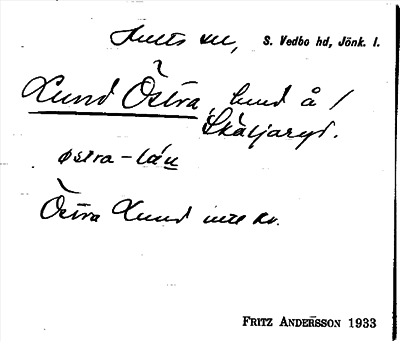 Hults sn, S. Vedbo hd, Jönk. l.
Lund Östra, lund å /
Skäljaryd.
østra-lún
Östra Lund inte kv.
FRITZ ANDERSSON 1933